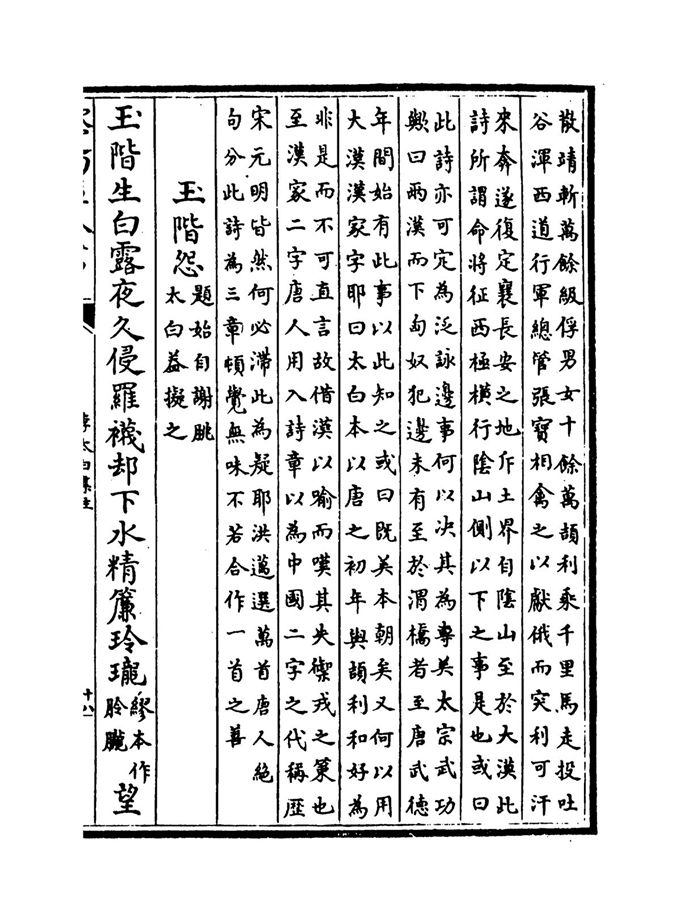 散靖斬萬餘級俘男女十餘萬頡利乘千里馬走投吐
谷渾西道行軍總管張寶相禽之以獻俄而突利可汗
來奔遂復定襄長安之地斥土界自陰山至於大漠此
詩所謂命將征西極橫行陰山側以下之事是也或曰
此詩亦可定為泛詠邊事何以決其為專美太宗武功
歟曰兩漢而下匈奴犯邊未有至於渭橋者至唐武德
年間始有此事以此知之或曰既美本朝矣又何以用
大漢漢家字耶曰太白本以唐之初年與頡利和好為
非是而不可直言故借漢以喻而嘆其失禦戎之策也
至漢家二字唐人用入詩章以為中國二字之代稱歷
宋元明皆然何必滯此為疑耶洪邁選萬首唐人絶
句分此詩為三章頓覺無味不若合作一首之善
玉階怨
題始自謝朓
太白葢擬之
玉階生白露夜久侵羅襪却下水精簾玲瓏
繆本作
朎朧
望
李太白集注
十八